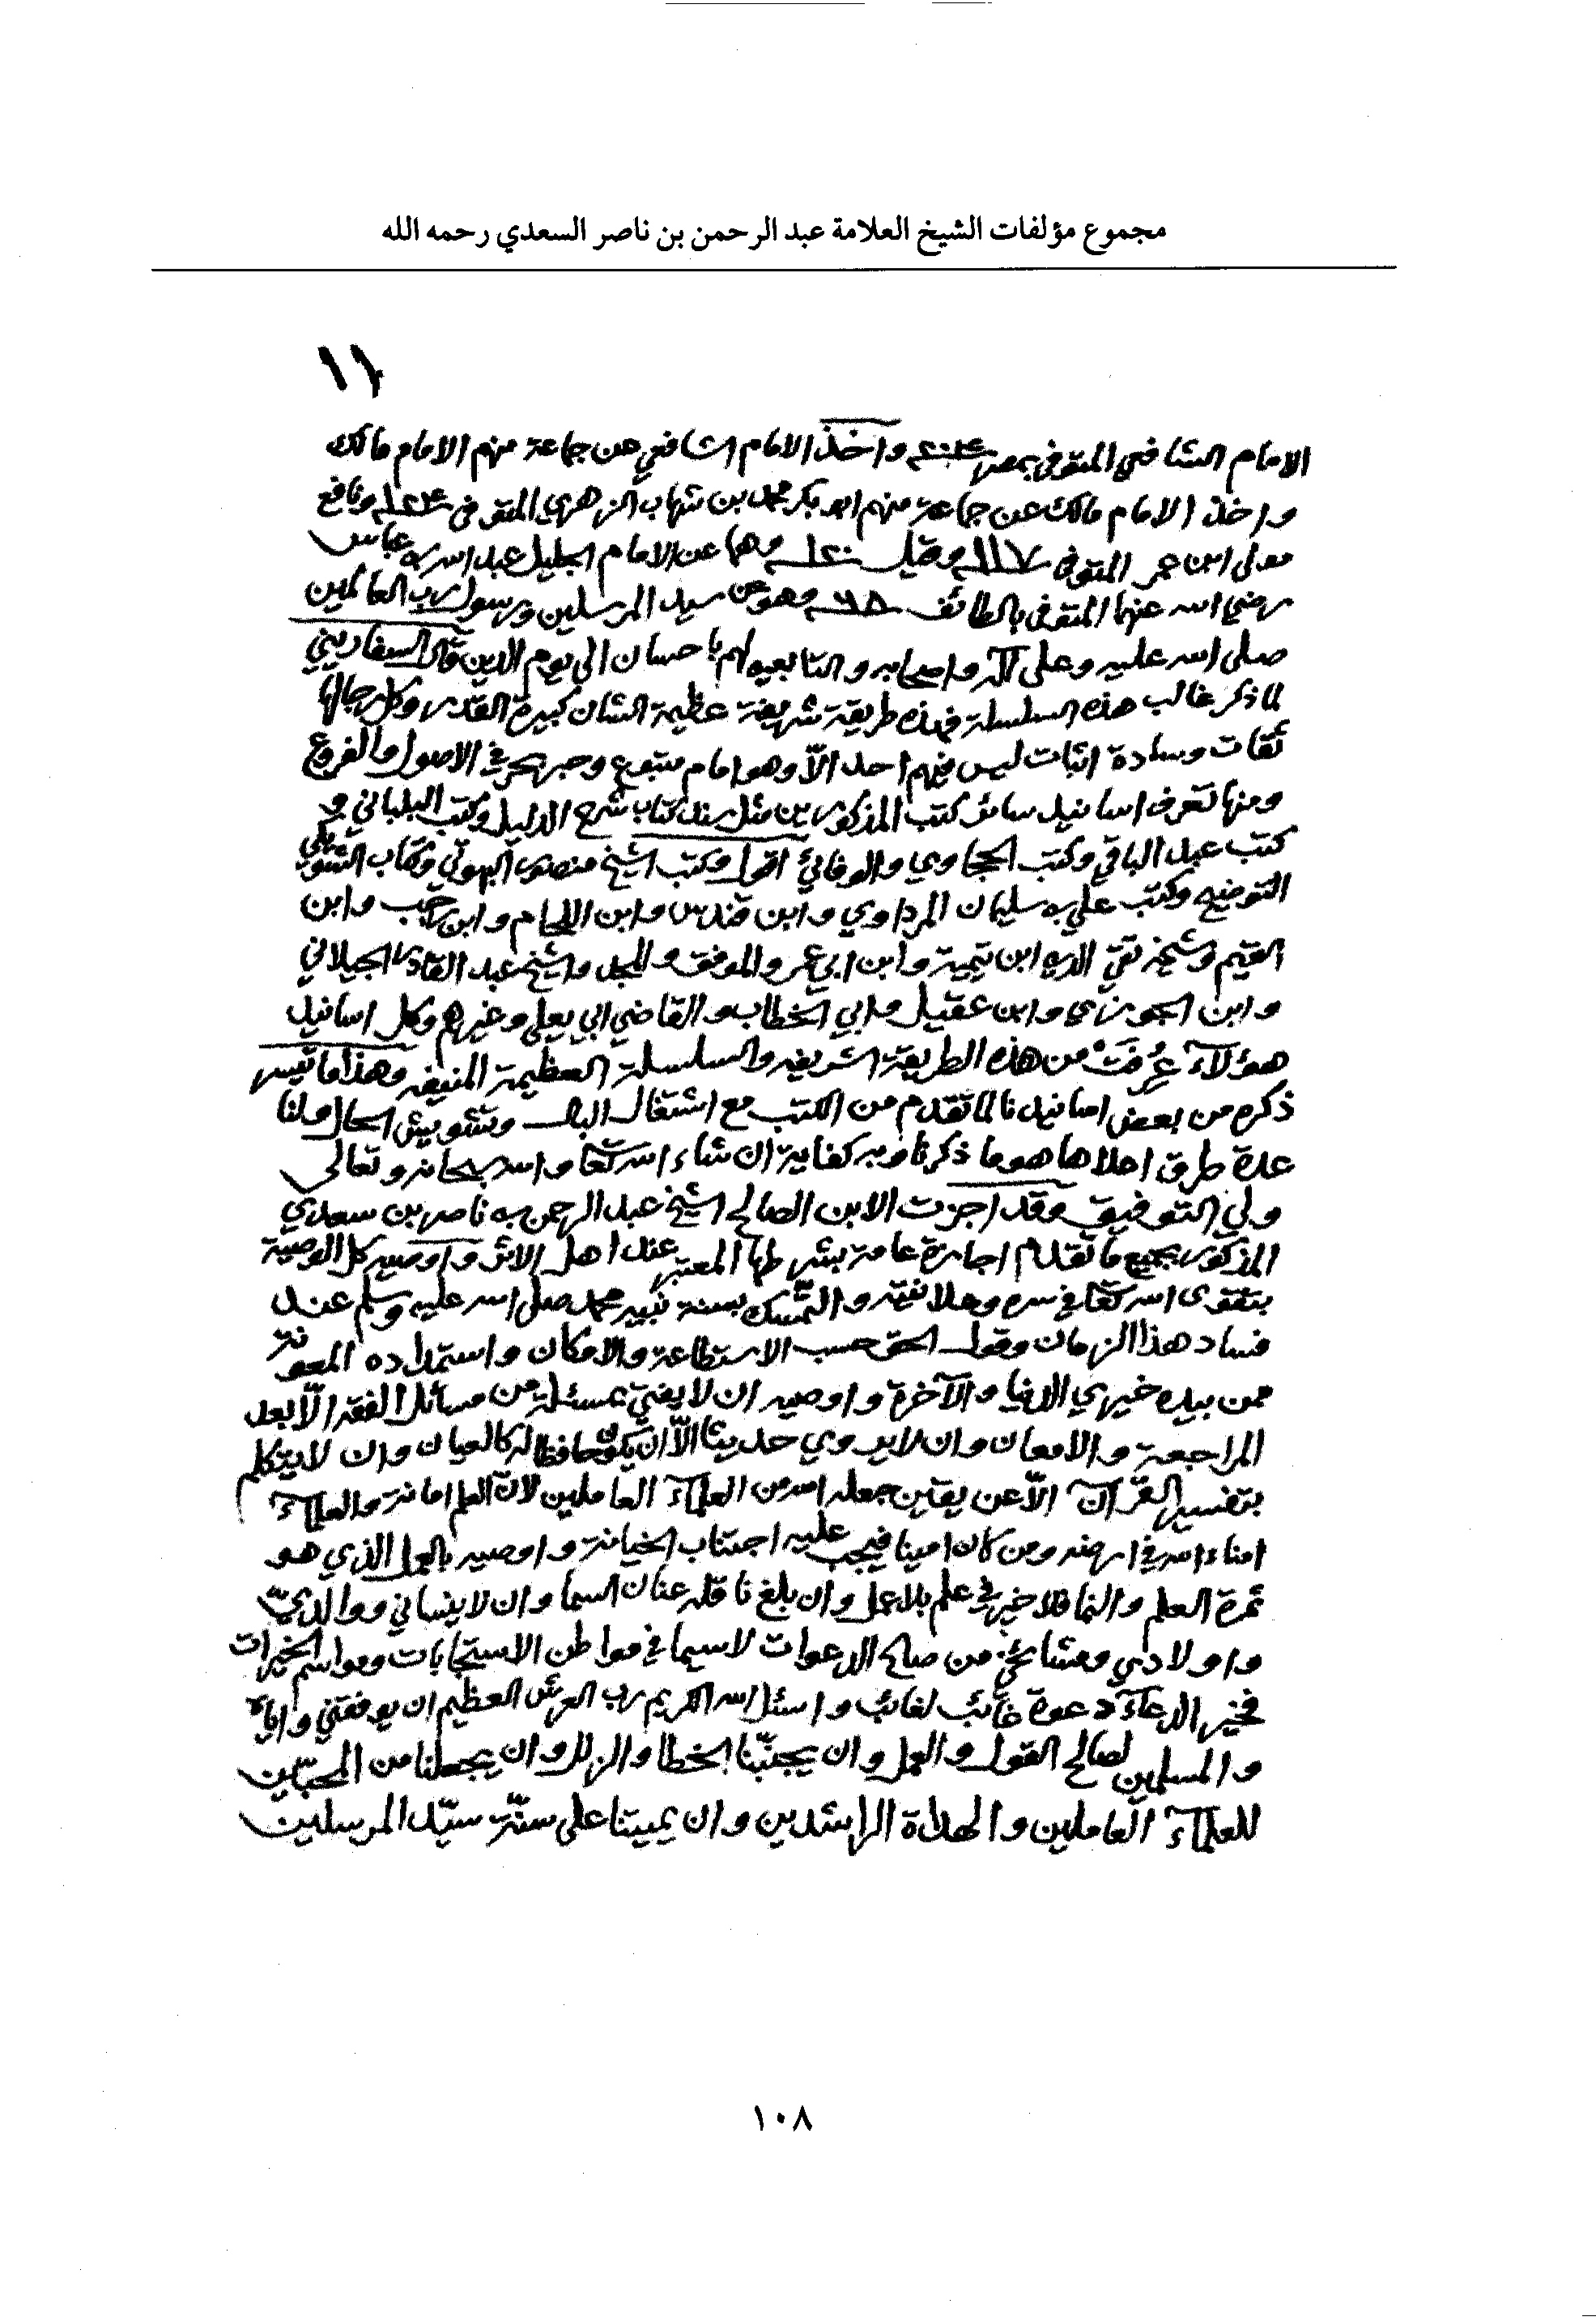 مجموع مؤلفات الشيخ العلامة عبد الرحمن بن ناصر السعدي رحمه الله
١١
الامام الشافعي المتوفى بمصر سنة ٢٠٤ واخذ الامام الشافعي عن جماعة منهم الامام مالك
واخذ الامام مالك عن جماعة منهم ابو بكر محمد بن شهاب الزهري المتوفى ١٢٤ ونافع
مولى ابن عمر المتوفى ١١٧ وقيل ١٢٠ وهما عن الامام الجليل عبد الله بن عباس
رضي الله عنهما المتوفى بالطائف ٦٨ وهو عن سيد المرسلين ورسول رب العالمين
صلى الله عليه وعلى آله واصحابه والتابعين لهم باحسان الى يوم الدين قال السفاريني
لما ذكر غالب هذه السلسلة فهذه طريقة شريفة عظيمة الشان كبيرة القدر وكل رجالها
ثقات وسادة اثبات ليس فيهم احد الّا وهو امام متبوع وحبر بحر في الاصول والفروع
ومنها تعرف اسانيد سائر كتب المذكورين مثل سند كتاب شرح الدليل وكتب البلباني و
كتب عبد الباقي وكتب الحجاوي والوفائي اقول وكتب الشيخ منصور البهوتي وكتاب الشويكي
التوضيح وكتب علي بن سليمان المرداوي وابن قندس وابن اللحام وابن رجب وابن
القيم وشيخه تقي الدين ابن تيمية وابن ابي عمر والموفق والمجد والشيخ عبد القادر الجيلاني
وابن الجوزي وابن عقيل وابي الخطاب والقاضي ابي يعلى وغيرهم وكل اسانيد
هؤلآء عُرفَتْ من هذه الطريقة الشريفه والسلسلة العظيمة المنيفه وهذا ما تيسر
ذكره من بعض اسانيدنا لما تقدم من الكتب مع اشتغال البال وتشويش الحال ولنا
عدة طرق اعلاها هو ما ذكرنا وبه كفاية ان شاء الله تعا والله سبحانه وتعالى
ولي التوفيق وقد اجزت الابن الصالح الشيخ عبد الرحمن بن ناصر بن سعدي
المذكور بجميع ما تقدم اجازة عامة بشرطها المعتبر عند اهل الاثر واوصيه كل الوصية
بتقوى الله تعا في سره وعلانيته والتمسّك بسنة نبيه محمد صلى الله عليه وسلم عند
فساد هذا الزمان وقول الحق حسب الاستطاعة والامكان واستمداده المعونة
ممن بيده خيري الدنيا والآخرة واوصيه ان لا يفتي بمسئلة من مسائل الفقه الّا بعد
المراجعة والامعان وان لا يروي حديثا الّا ان يكون حافظا له كالعيان وان لا يتكلم
بتفسير القرآن الّا عن يقين جعله الله من العلمآء العاملين لانّ العلم امانة والعلمآء
امناء الله في ارضه ومن كان امينا فيجب عليه اجتناب الخيانة واوصيه بالعمل الذي هو
ثمرة العلم والنما فلا خير في علم بلا عمل وان بلغ ناقله عنان السما وان لا ينساني ووالديّ
واولادي ومشائخي من صالح الدعوات لاسيما في مواطن الاستجابات ومواسم الخيرات
فخير الدعآء دعوة غائب لغائب واسئل الله الكريم رب العرش العظيم ان يوفقني واياه
والمسلمين لصالح القول والعمل وان يجنّبنا الخطا والزلل وان يجعلنا من المحبّين
للعلمآء العاملين والهداة الراشدين وان يميتنا على سنّة سيّد المرسلين
١٠٨